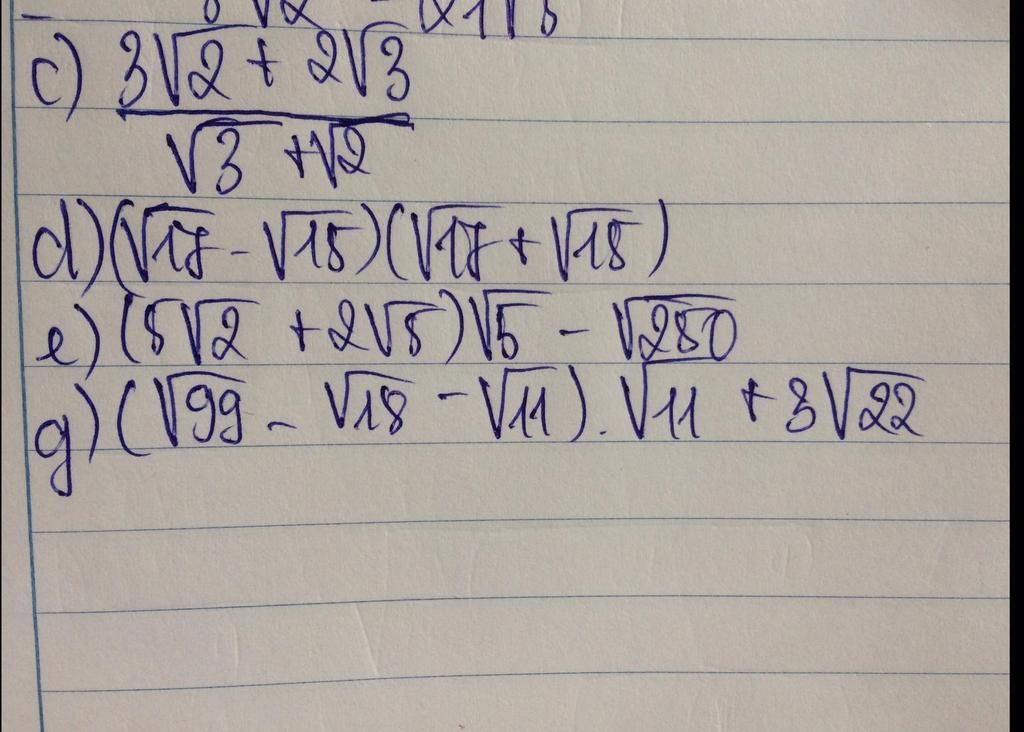 c) (3√2 + 2√3)/(√3 + √2)
d) (√17 - √15)(√17 + √15)
e) (5√2 + 2√5)√5 - √250
g) (√99 - √18 - √11) . √11 + 3√22